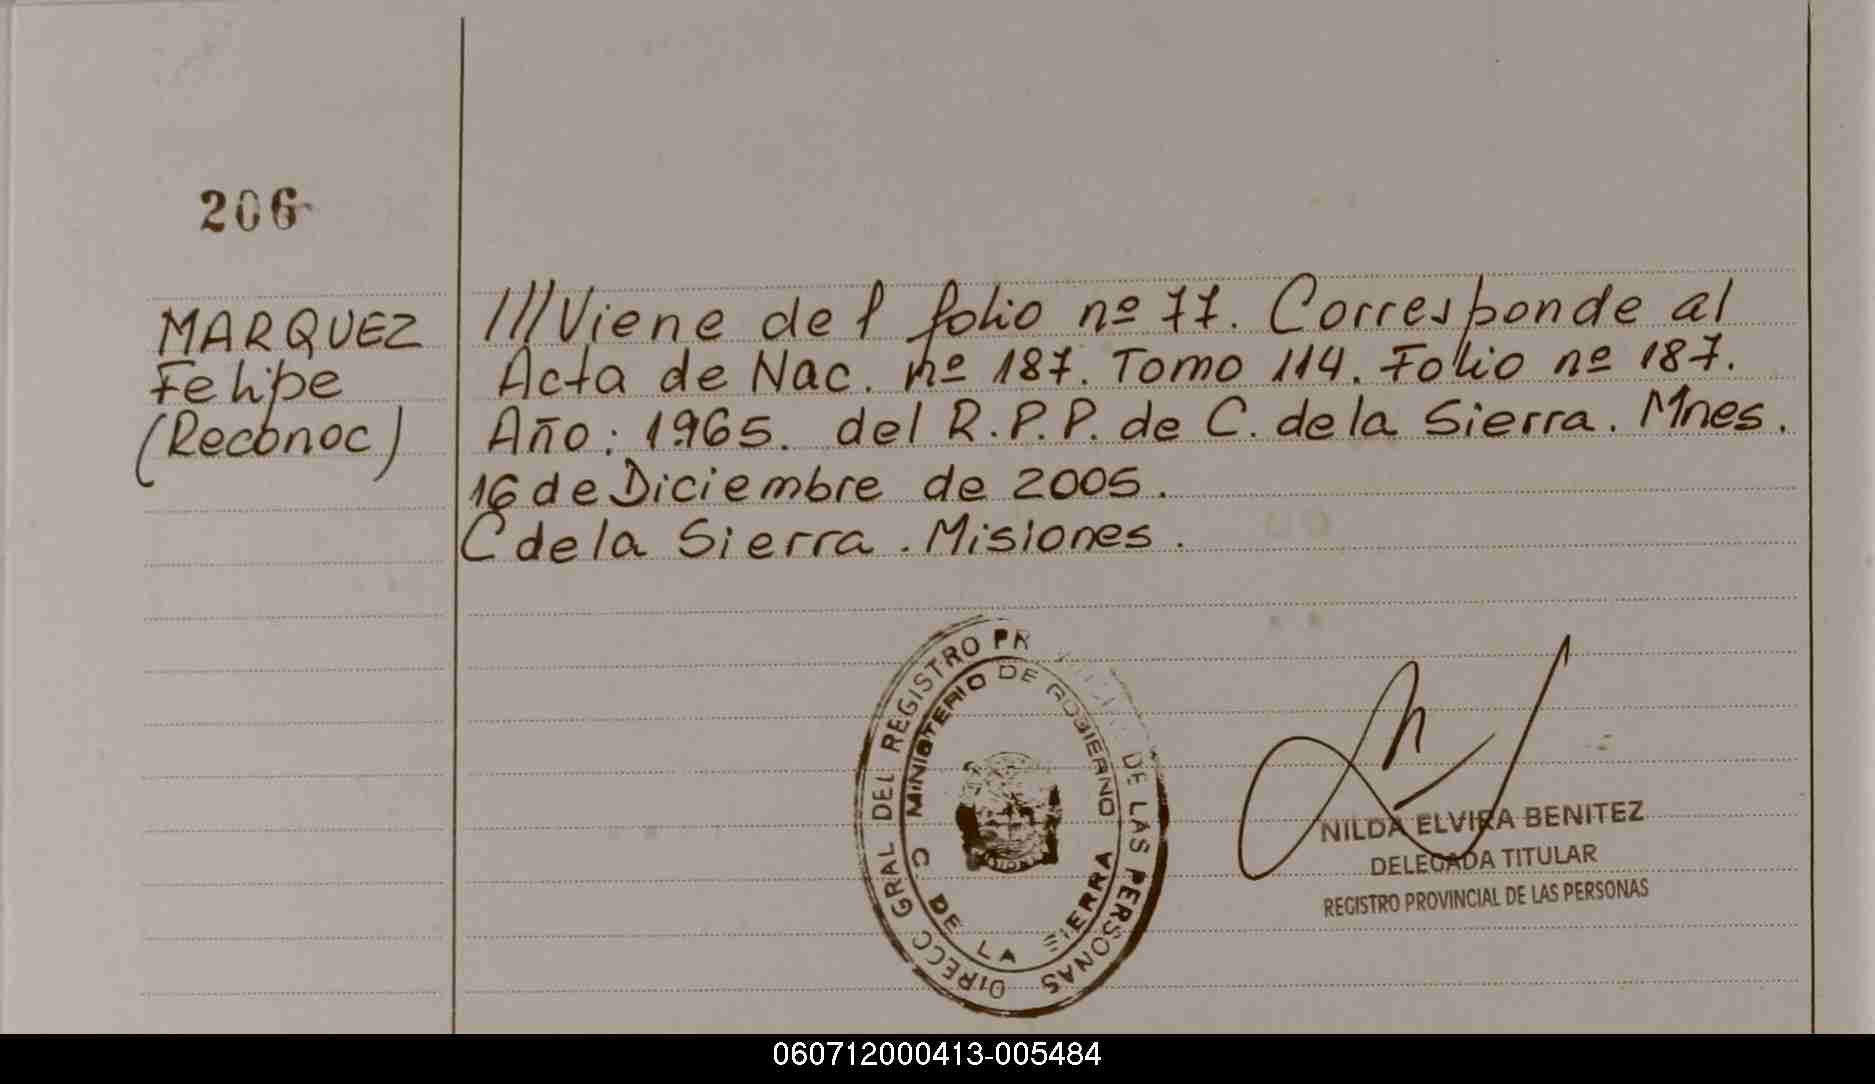 206
MARQUEZ
Felipe
(Reconoc)
///Viene del folio nº 77. Corresponde al
Acta de Nac. nº 187. Tomo 114. Folio nº 187.
Año: 1965. del R.P.P. de C. de la Sierra. Mnes.
16 de Diciembre de 2005.
C de la Sierra. Misiones.
DIRECC GRAL DEL REGISTRO PR DE LAS PERSONAS
MINISTERIO DE GOBIERNO
C DE LA SIERRA
NILDA ELVIRA BENITEZ
DELEGADA TITULAR
REGISTRO PROVINCIAL DE LAS PERSONAS
060712000413-005484